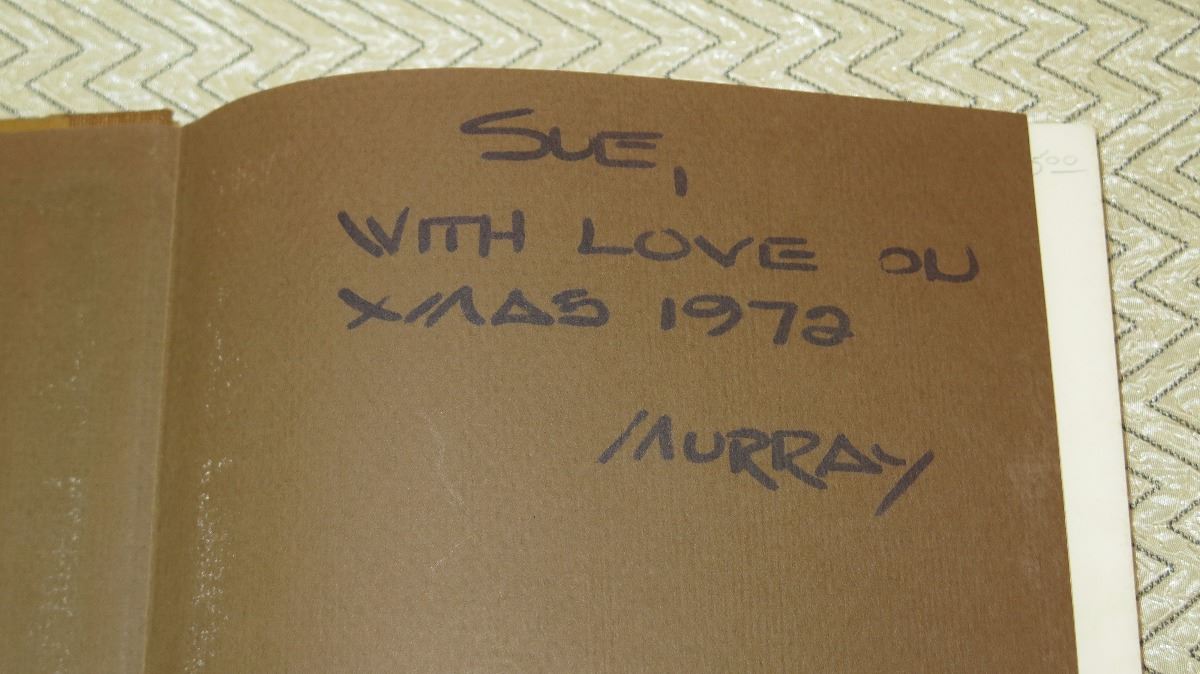 SUE,
WITH LOVE ON
XMAS 1972
MURRAY
500